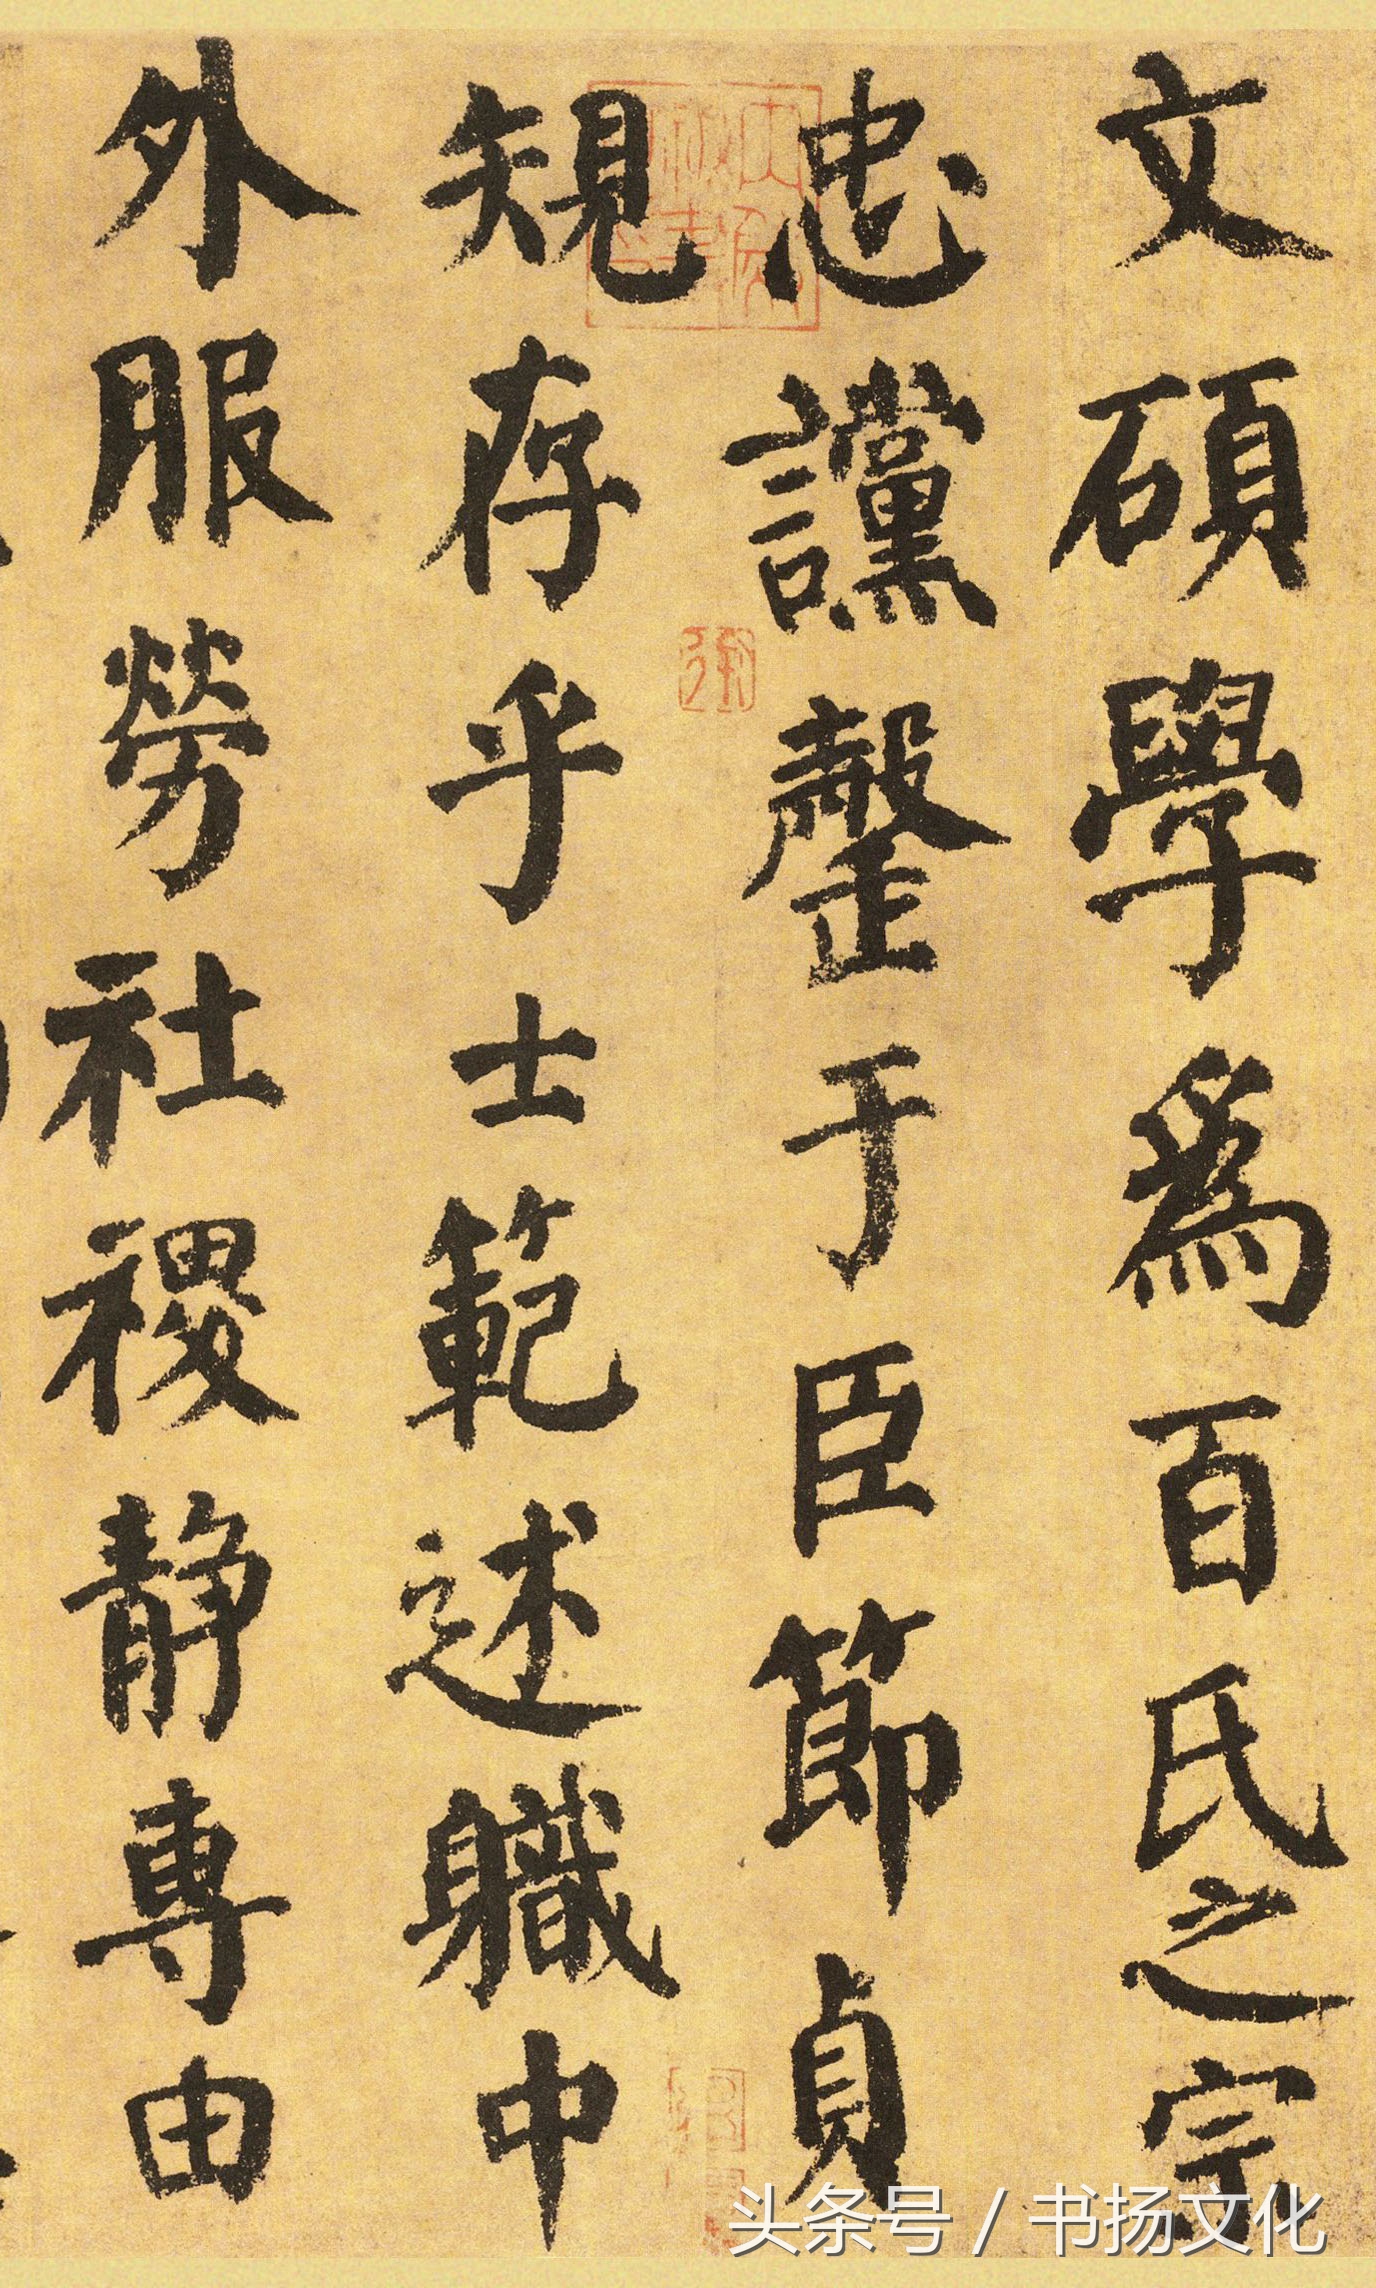 文碩學為百氏之宗
忠讜罄于臣節貞
規存乎士範述職中
外服勞社稷靜專由
头条号 / 书扬文化